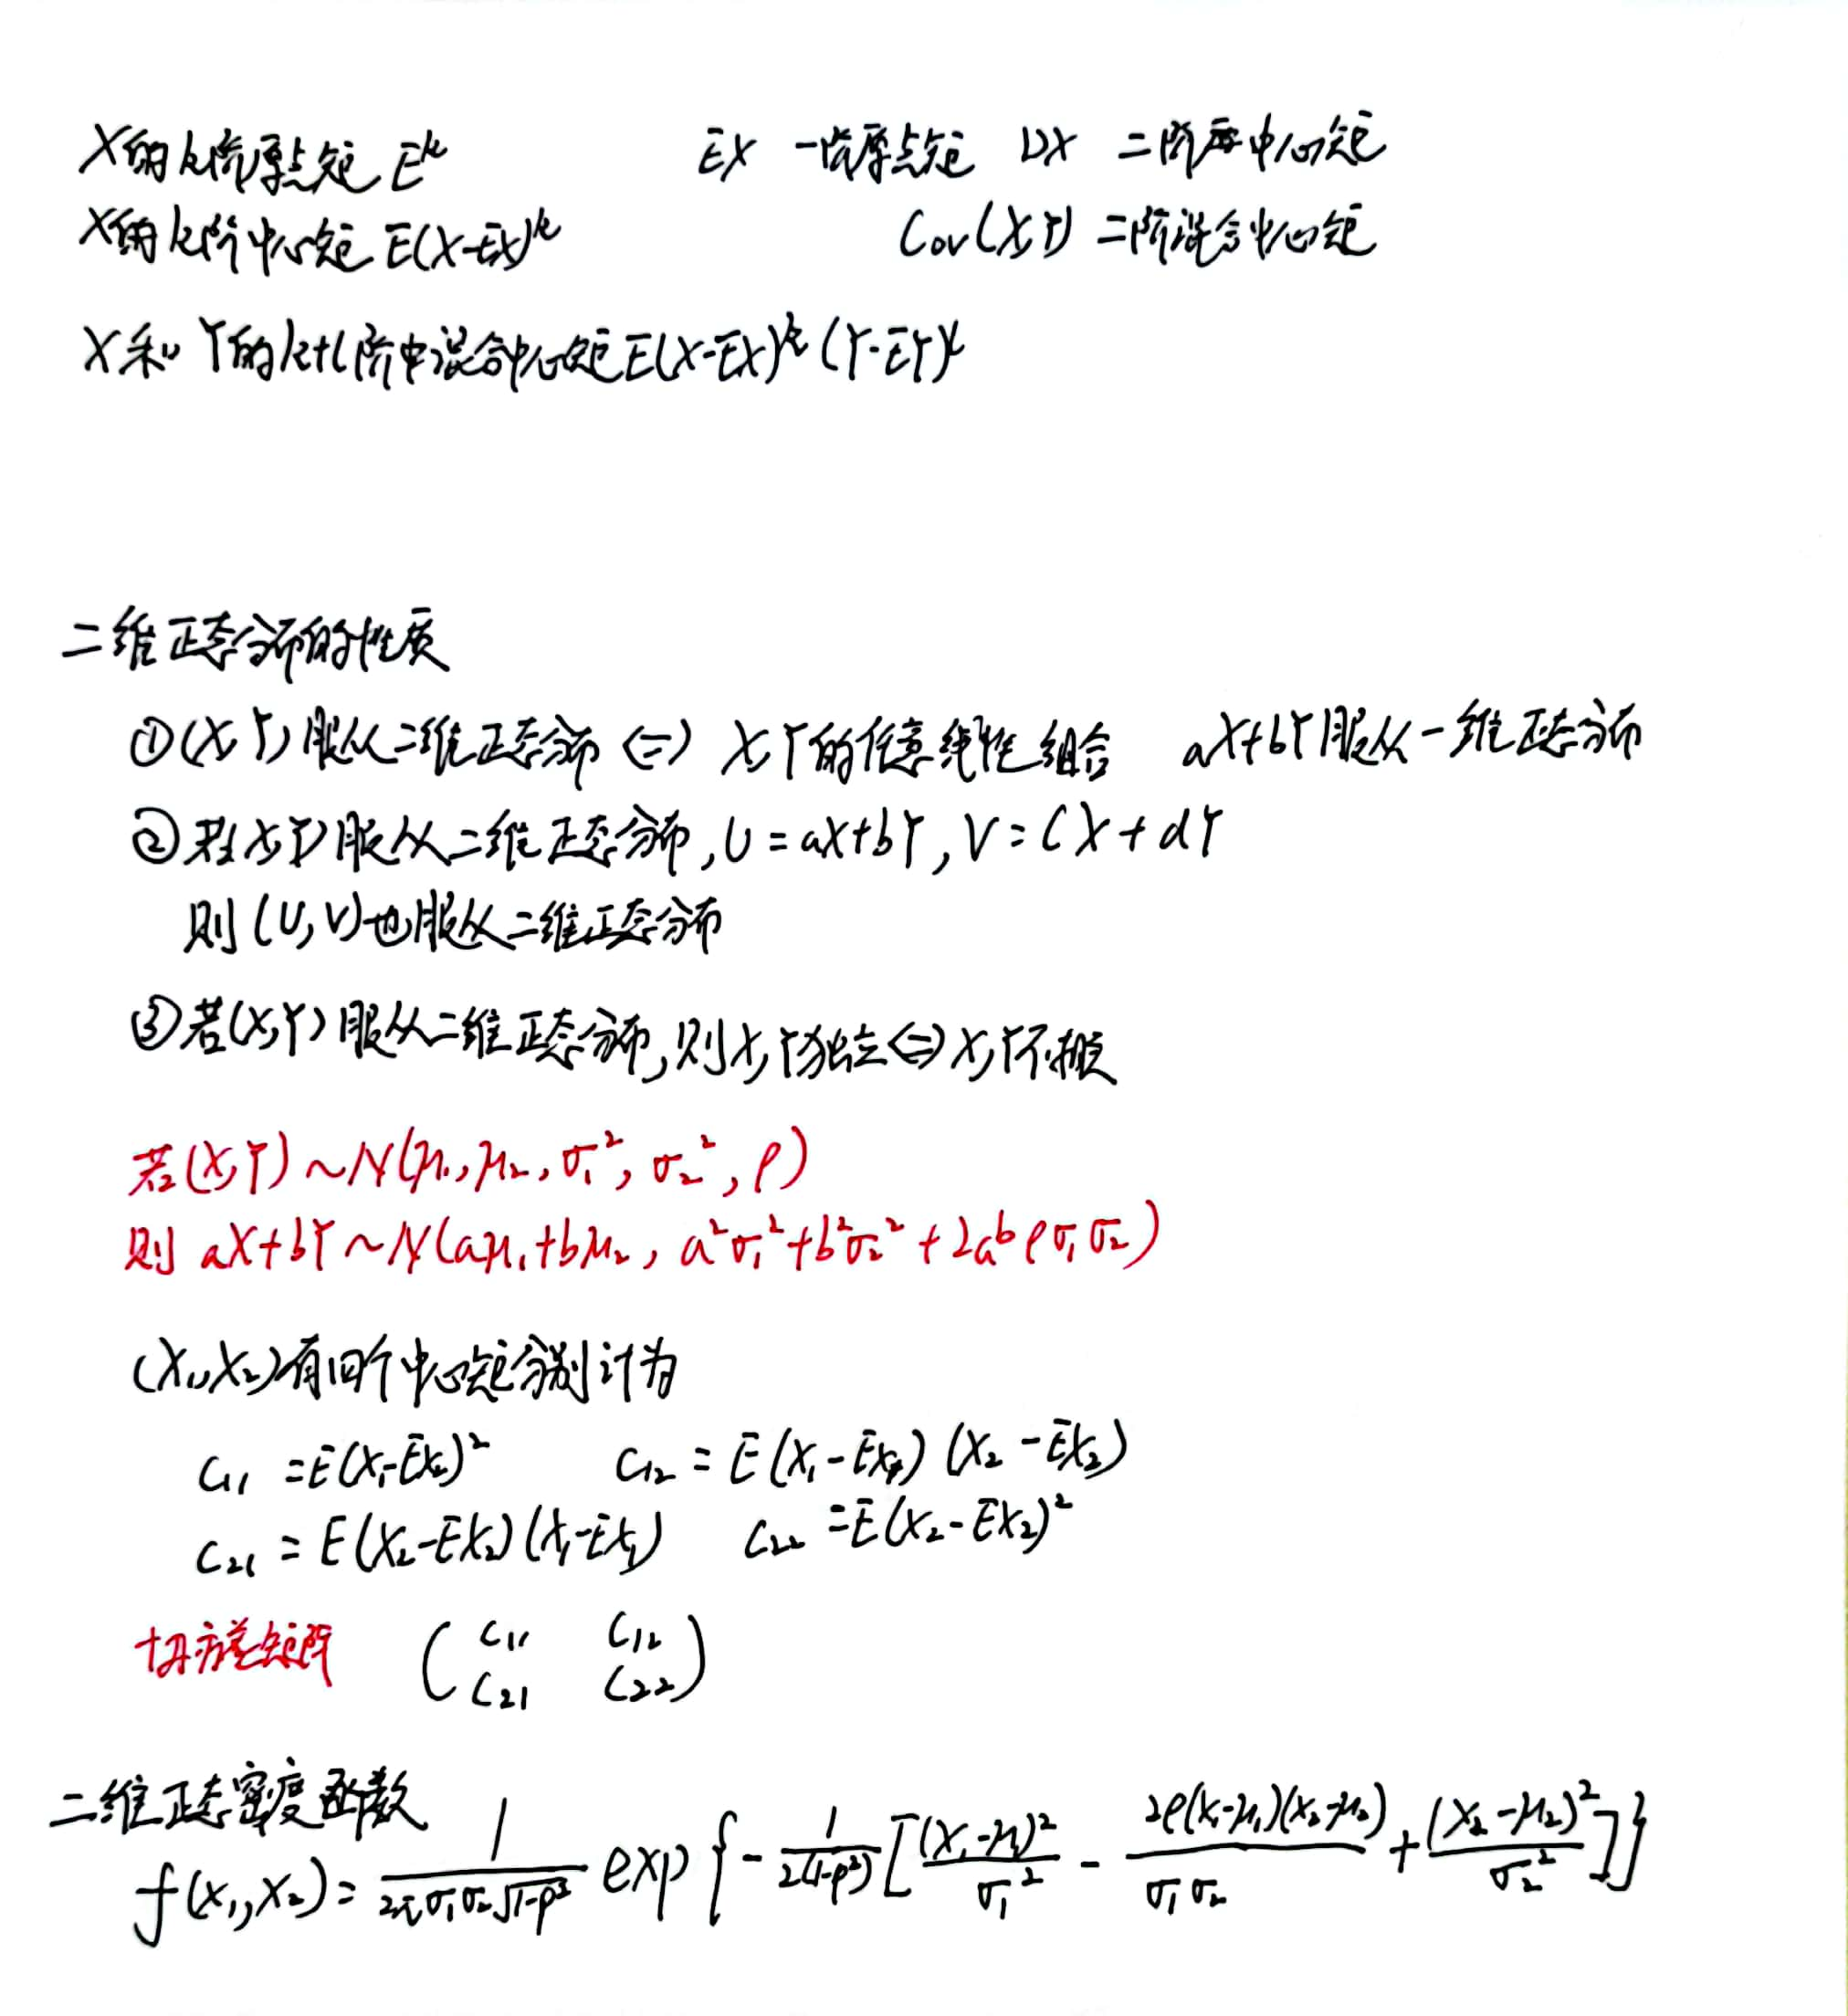 X的k阶原点矩 E^k EX 一阶原点矩 DX 二阶中心矩
X的k阶中心矩 E(X-EX)^k Cov(X,Y) 二阶混合中心矩
X和Y的k+l阶中混合中心矩 E(X-EX)^k (Y-EY)^l
二维正态分布的性质
①(X,Y)服从二维正态分布 <=> X,Y的任意线性组合 aX+bY服从一维正态分布
②若(X,Y)服从二维正态分布,U=aX+bY,V=CX+dY
则(U,V)也服从二维正态分布
③若(X,Y)服从二维正态分布,则X,Y独立<=>X,Y不相关
若(X,Y)~N(μ₁,μ₂,σ₁²,σ₂²,ρ)
则 aX+bY~N(aμ₁+bμ₂, a²σ₁²+b²σ₂²+2abρσ₁σ₂)
(X₁,X₂)有四个中心矩分别计为
C₁₁=E(X₁-EX₁)² C₁₂=E(X₁-EX₁)(X₂-EX₂)
C₂₁=E(X₂-EX₂)(X₁-EX₁) C₂₂=E(X₂-EX₂)²
协方差矩阵 (C₁₁ C₁₂
C₂₁ C₂₂)
二维正态密度函数
f(x₁,x₂)=1/(2πσ₁σ₂√(1-ρ²)) exp{-1/(2(1-ρ²))[(x₁-μ₁)²/σ₁² - 2ρ(x₁-μ₁)(x₂-μ₂)/(σ₁σ₂) + (x₂-μ₂)²/σ₂²]}